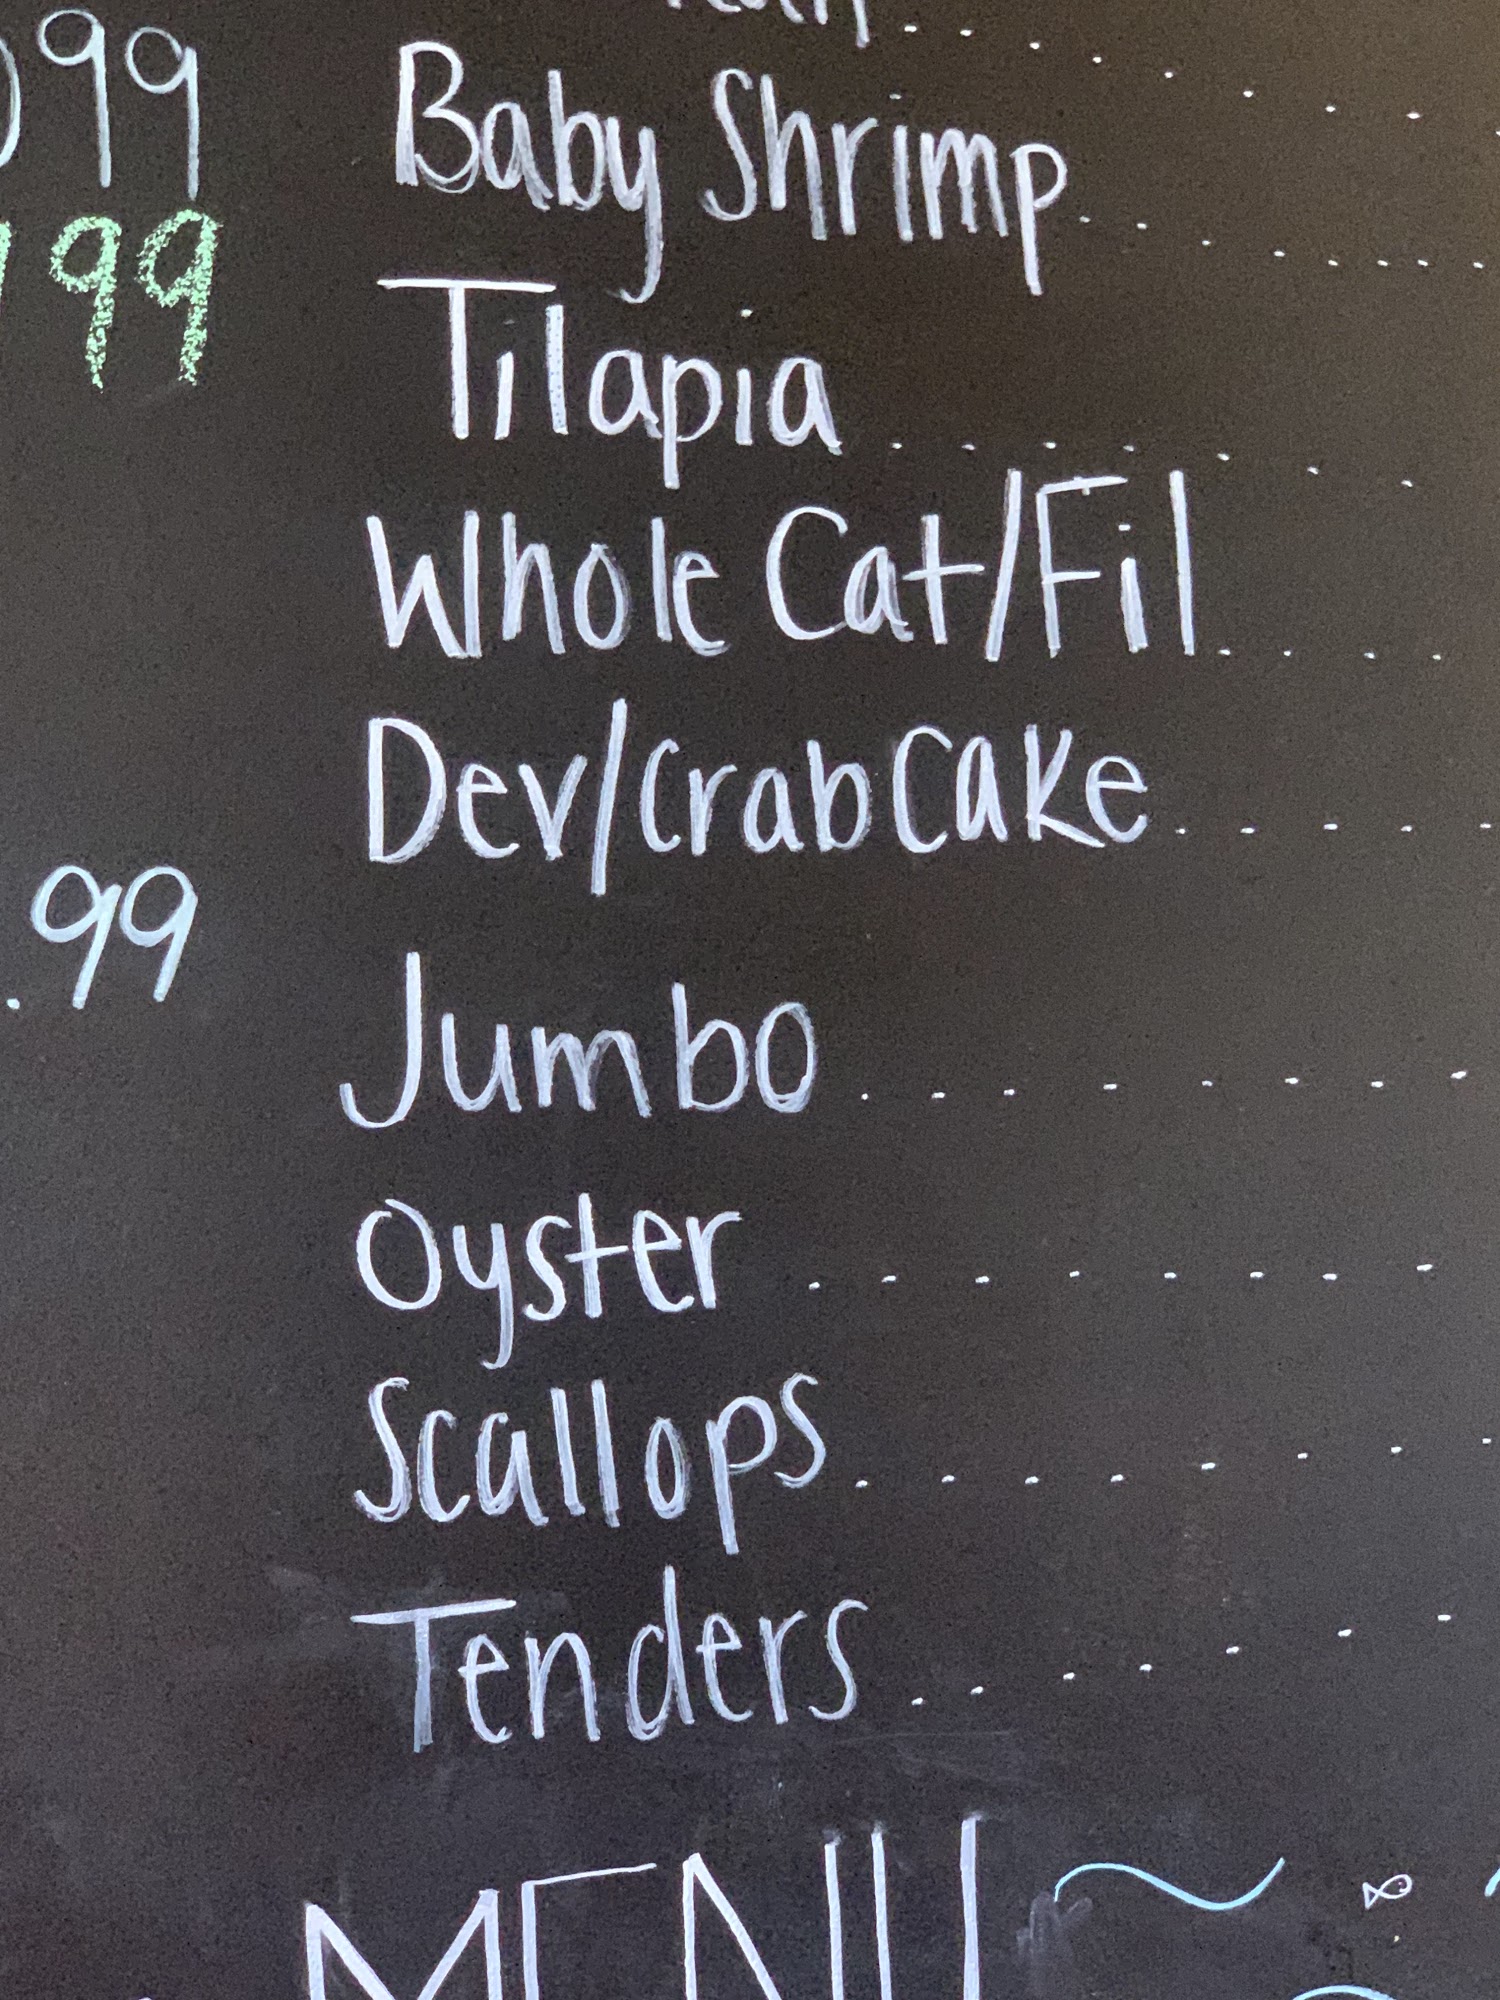 99
Baby Shrimp
99
Tilapia
Whole Cat/Fil
Dev/Crab Cake
.99
Jumbo
Oyster
Scallops
Tenders
MENU